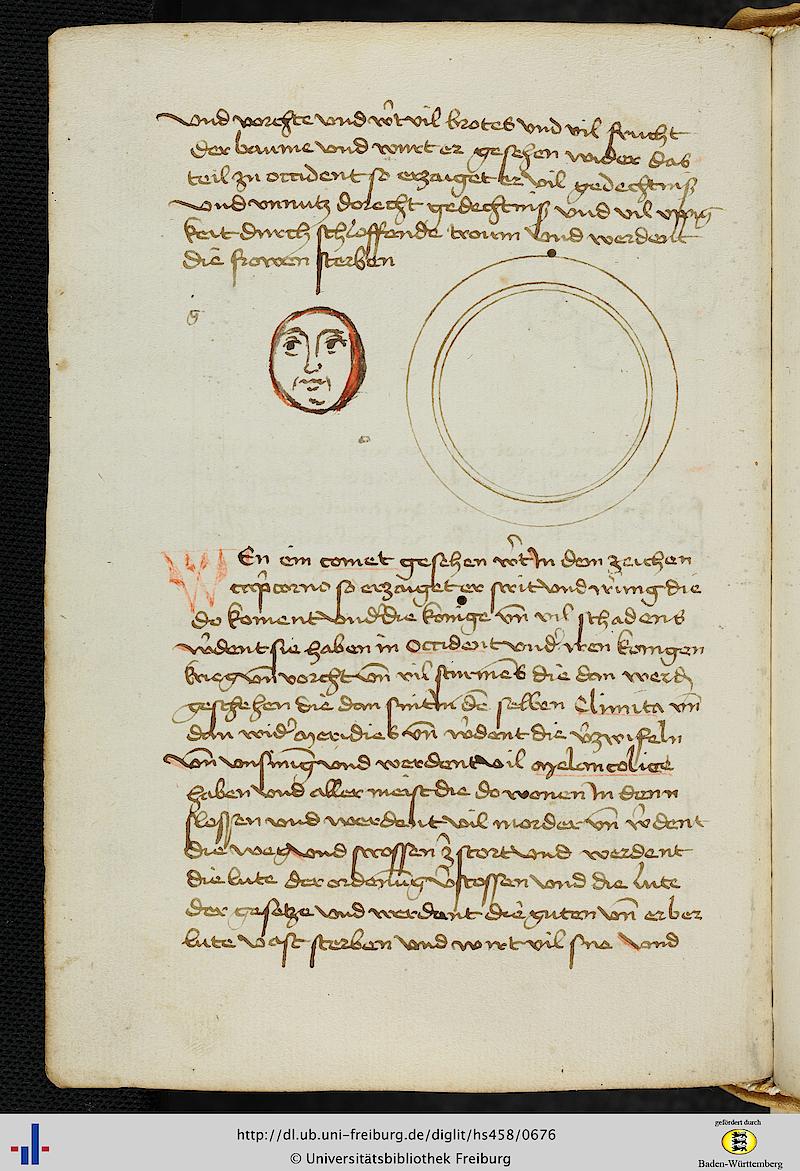 vnd vorchte vnd w't vil brotes vnd vil frucht
der baume vnd wurt er gesehen wider das
teil zu occident so erzaiget er vil gedechtniß
vnd vnnutz dorecht gedechtniß vnd vil vppig
keit durch schloffende troum vnd werdent
die frowen sterben
WEn ein comet gesehen w't in dem zeichen
cap'corno so erzaiget er strit vnd die
do koment vnd die konige vn̄ vil schadens
w'dent sie haben in occident vnd iren konigen
krieg vn̄ vorcht vn̄ vil sturmes die dan werd
geschehen die dan sint in de selben Climata vn̄
dan wid' meridies vn̄ w'dent die v'zwifeln
vn̄ vnsinnig vnd werdent vil melancolice
haben vnd aller meist die do wonen in denn
slossen vnd werdent vil morder vn̄ w'dent
die weg vnd strossen z'stort vnd werdent
die lute der ordenu̅g v'stossen vnd die lute
der gesetze vnd werdent die guten vn̄ erber
lute vast sterben vnd wirt vil sne vnd
http://dl.ub.uni-freiburg.de/diglit/hs458/0676
© Universitätsbibliothek Freiburg
gefördert durch
Baden-Württemberg